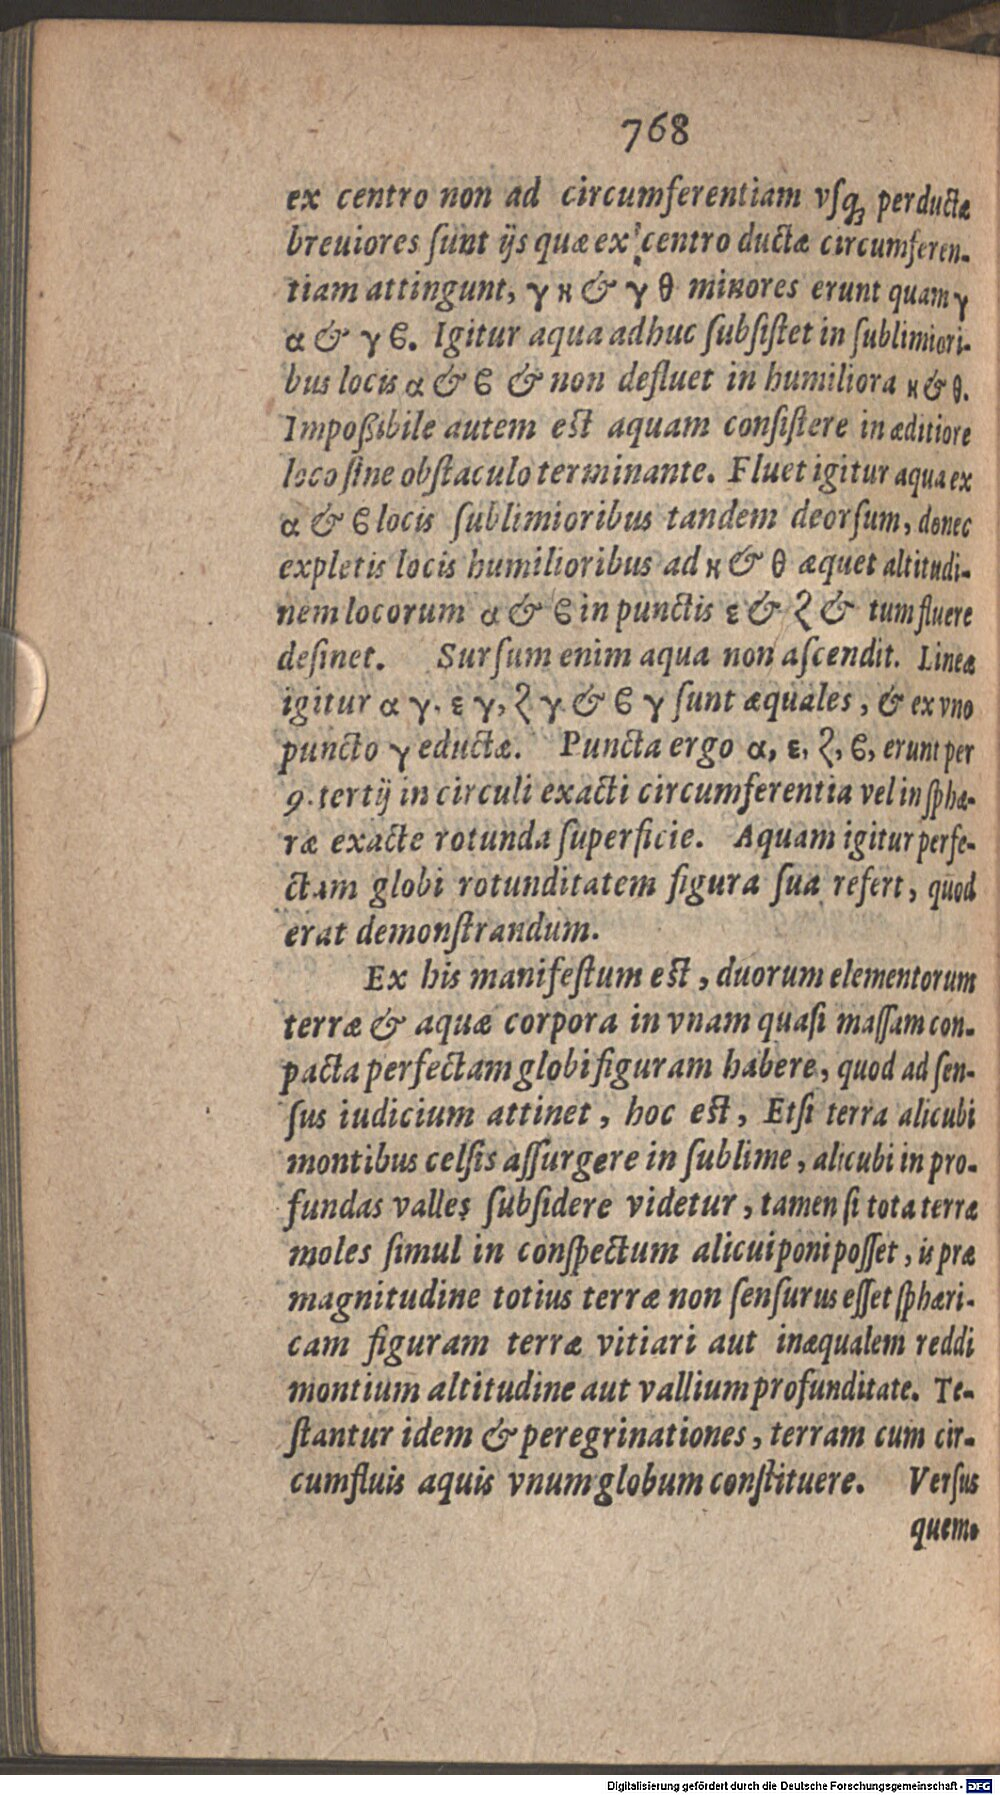 768
ex centro non ad circumferentiam vſq; perductæ
breuiores ſunt ijs quæ ex centro ductæ circumferen-
tiam attingunt, γ κ & γ θ minores erunt quam γ
α & γ ϐ. Igitur aqua adhuc ſubſiſtet in ſublimiori-
bus locis α & ϐ & non defluet in humiliora κ & θ.
Impoßibile autem est aquam conſiſtere in æditiore
loco ſine obſtaculo terminante. Fluet igitur aqua ex
α & ϐ locis ſublimioribus tandem deorſum, donec
expletis locis humilioribus ad κ & θ æquet altitudi-
nem locorum α & ϐ in punctis ε & ζ & tum fluere
deſinet. Surſum enim aqua non aſcendit. Lineæ
igitur α γ, ε γ, ζ γ & ϐ γ ſunt æquales, & ex vno
puncto γ eductæ. Puncta ergo α, ε, ζ, ϐ, erunt per
9. tertij in circuli exacti circumferentia vel in ſphæ-
ræ exacte rotunda ſuperficie. Aquam igitur perfe-
ctam globi rotunditatem figura ſua refert, quod
erat demonſtrandum.
Ex his manifeſtum est, duorum elementorum
terræ & aquæ corpora in vnam quaſi maſſam con-
pacta perfectam globi figuram habere, quod ad ſen-
ſus iudicium attinet, hoc est, Etſi terra alicubi
montibus celſis aſſurgere in ſublime, alicubi in pro-
fundas valles ſubſidere videtur, tamen ſi tota terræ
moles ſimul in conſpectum alicui poni poſſet, is præ
magnitudine totius terræ non ſenſurus eſſet ſphæri-
cam figuram terræ vitiari aut inæqualem reddi
montium altitudine aut vallium profunditate. Te-
ſtantur idem & peregrinationes, terram cum cir-
cumfluis aquis vnum globum conſtituere. Verſus
quem-
Digitalisierung gefördert durch die Deutsche Forschungsgemeinschaft - DFG